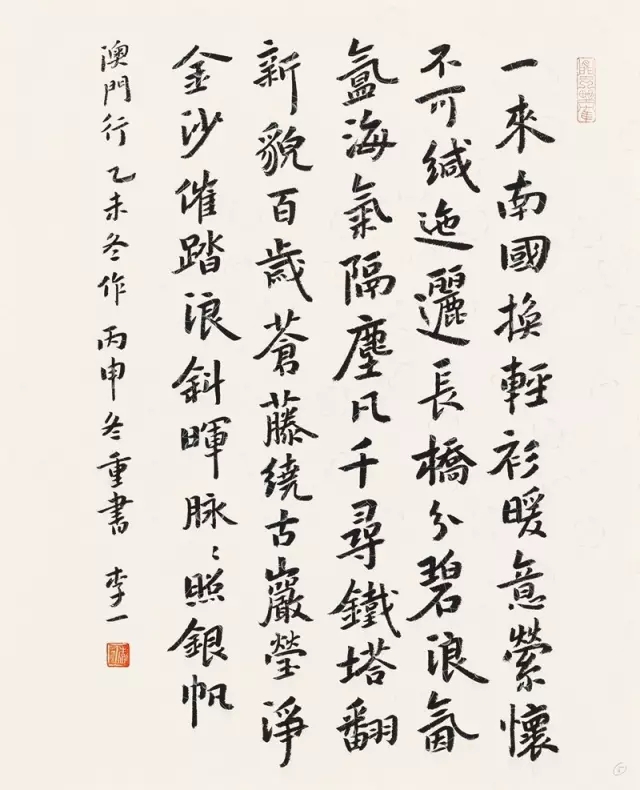 一來南國換輕衫暖意縈懷
不可緘迤邐長橋分碧浪氤
氳海氣隔塵凡千尋鐵塔翻
新貌百歲蒼藤繞古巖瑩淨
金沙催踏浪斜暉脉〻照銀帆
澳門行乙未冬作丙申冬重書李一